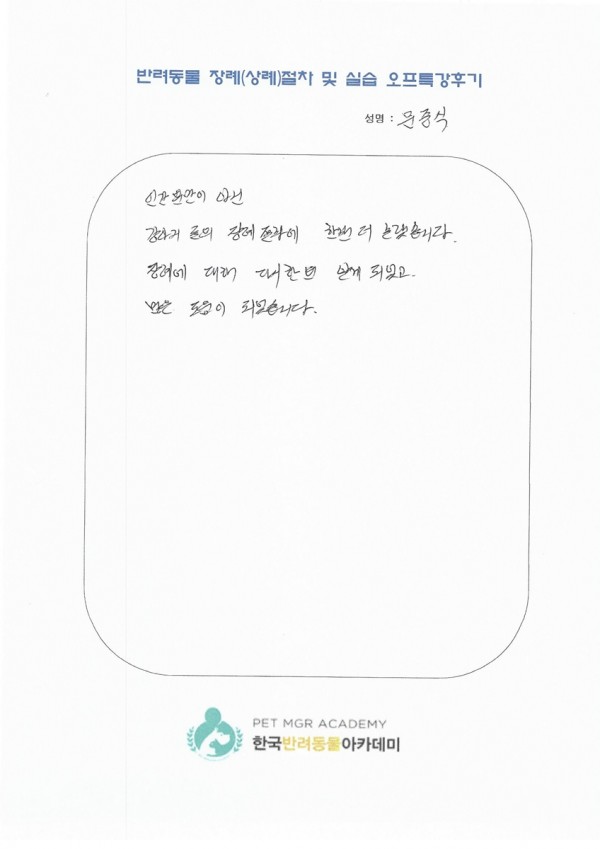 반려동물 장례(상례)절차 및 실습 오프특강후기
성명 : 문종식
인간뿐만이 아닌
강아지 들의 장례 문화에 한번 더 놀랐습니다.
장례에 대해 다시한번 알게 되었고.
많은 도움이 되었습니다.
PET MGR ACADEMY
한국반려동물아카데미